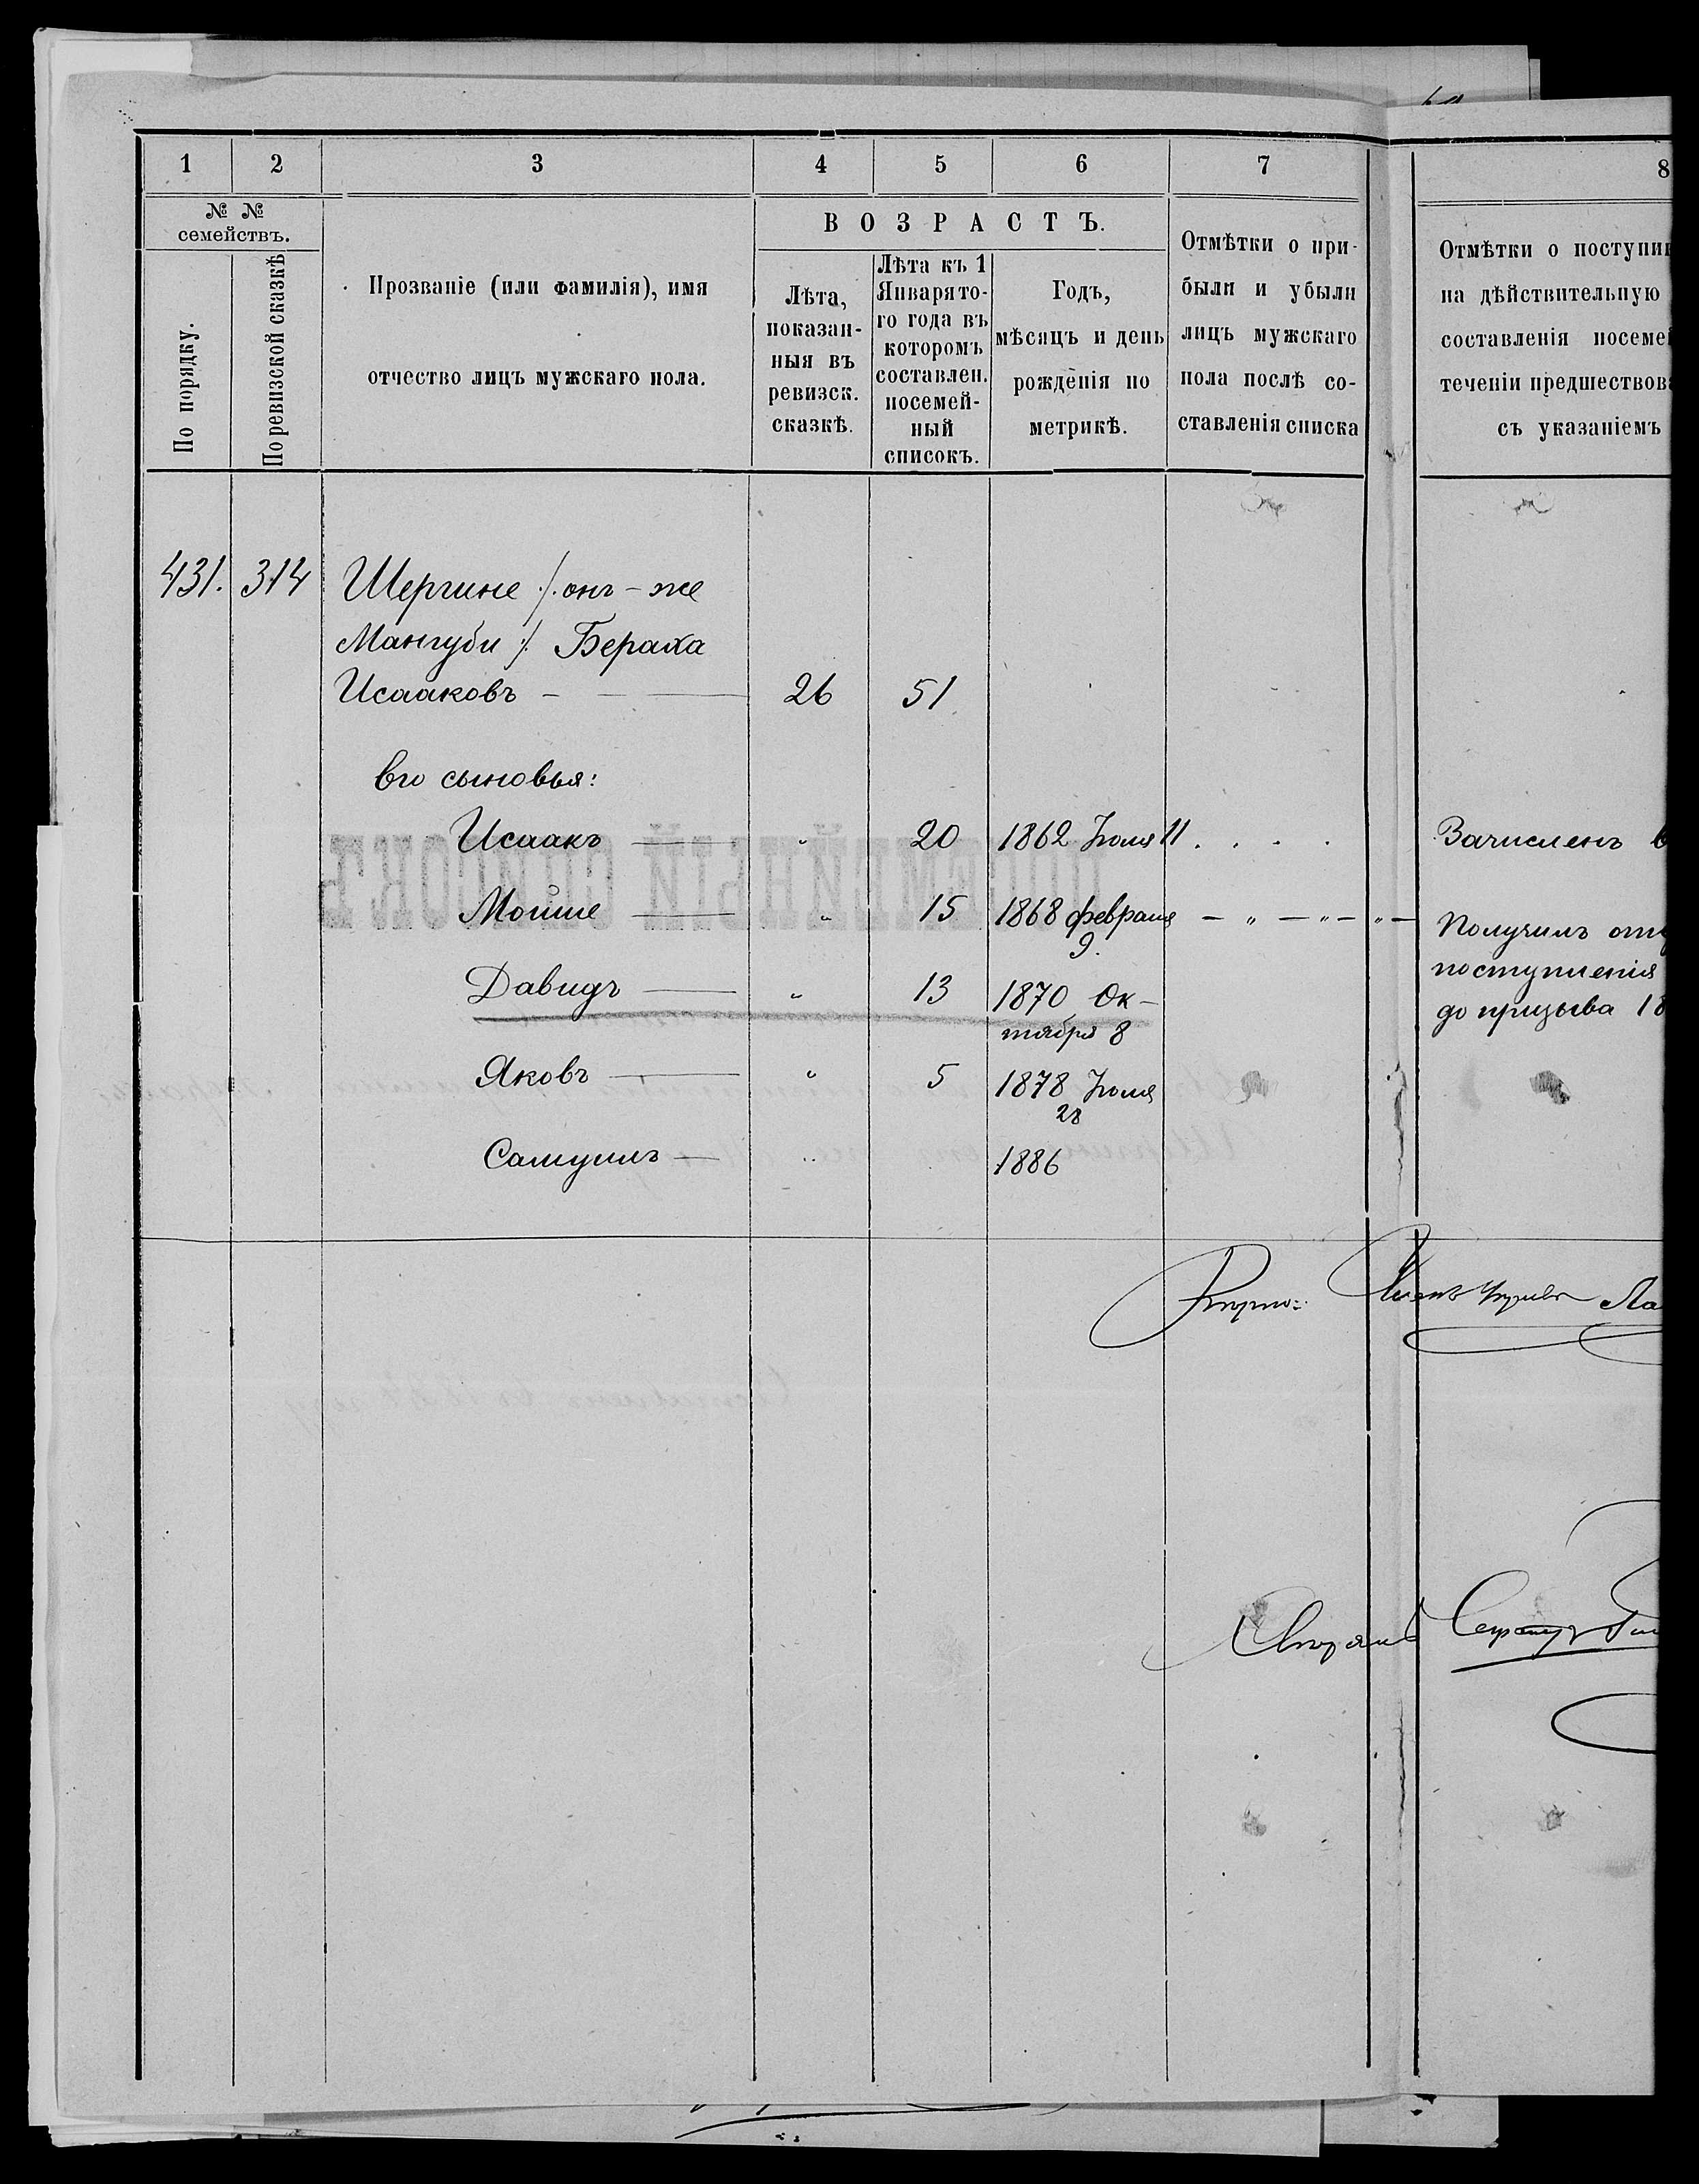 1 2 3 4 5 6 7 8
№ №
семействъ.
По порядку.
По ревизской сказкѣ
Прозваніе (или фамилія), имя
отчество лицъ мужскаго пола.
ВОЗРАСТЪ.
Лѣта,
показан-
ныя въ
ревизск.
сказкѣ.
Лѣта къ 1
Января то-
го года въ
которомъ
составлен.
посемей-
ный
списокъ.
Годъ,
мѣсяцъ и день
рожденія по
метрикѣ.
Отмѣтки о при-
были и убыли
лицъ мужскаго
пола послѣ со-
ставленія списка
Отмѣтки о поступи
на дѣйствительную
составленія посеме
теченіи предшествов
съ указаніемъ
431. 314 Шергине /. онъ-же
Мангуби ./ Бераха
Исааковъ - 26 51
Его сыновья:
Исаакъ " 20 1862 Іюля 11
Зачисленъ в
Мойше " 15 1868 февраля
9.
Получилъ отс
поступленія
до призыва 18
Давидъ " 13 1870 Ок-
тября 8
Яковъ " 5 1878 Іюля
28
Самуилъ " 1886
ПОСЕМЕЙНЫЙ СПИСОКЪ